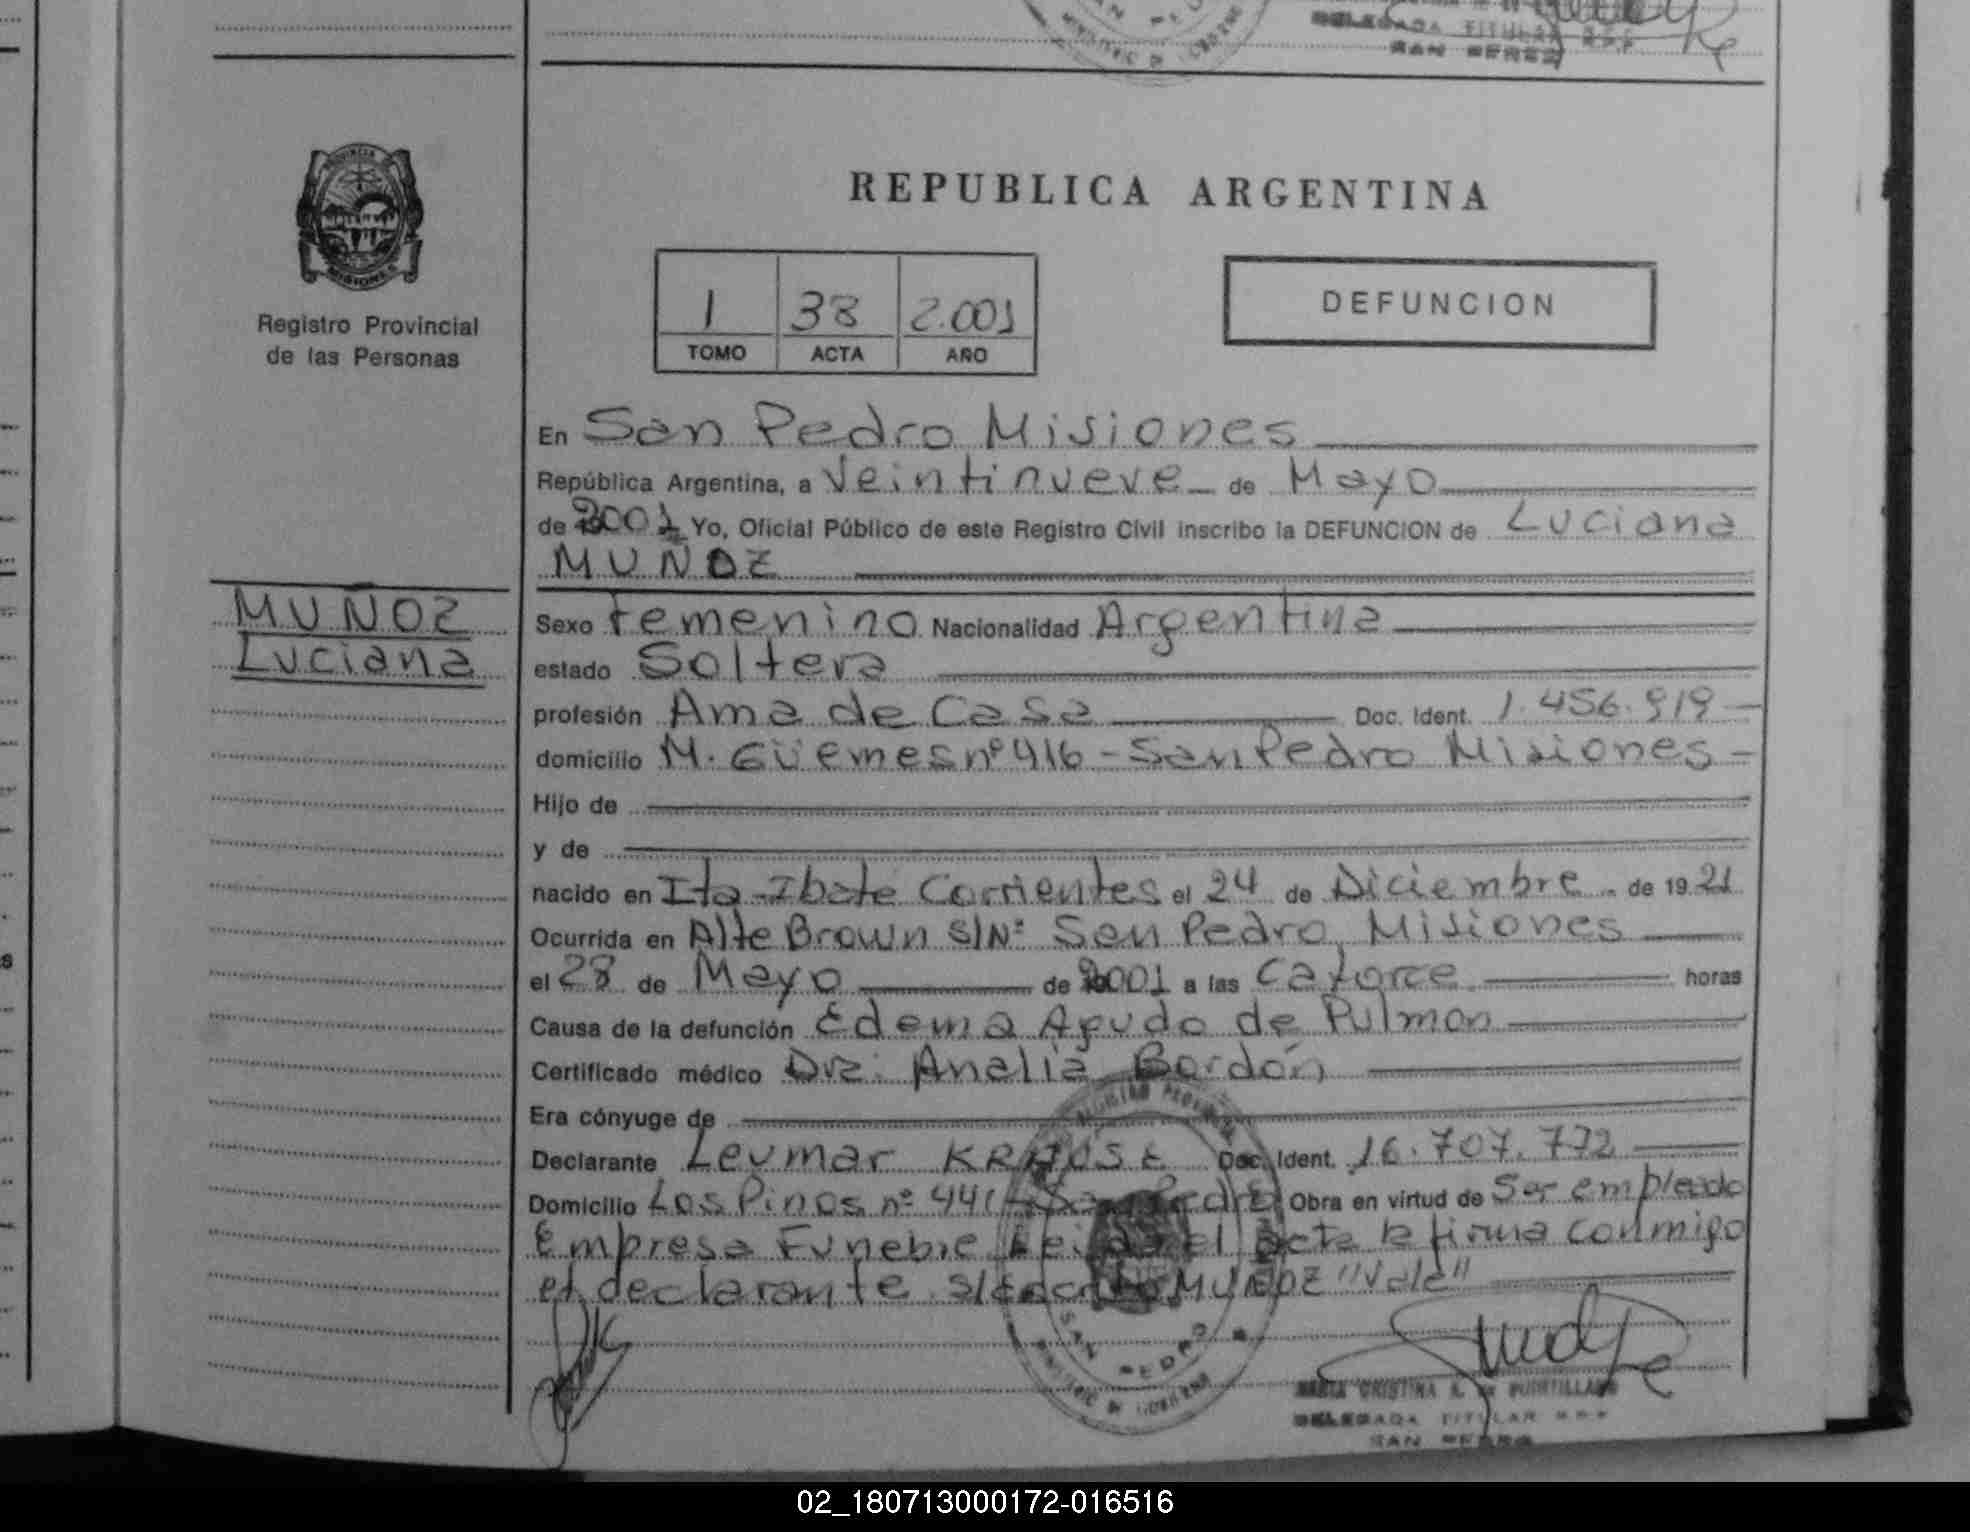 DELEGADA TITULAR R.P.P.
SAN PEDRO
PROVINCIA DE
MISIONES
Registro Provincial
de las Personas
REPUBLICA ARGENTINA
1 38 2.001
TOMO ACTA AÑO
DEFUNCION
En San Pedro Misiones
República Argentina, a Veintinueve de Mayo
de 2001 Yo, Oficial Público de este Registro Civil inscribo la DEFUNCION de Luciana
MUÑOZ
MUÑOZ
Luciana
Sexo Femenino Nacionalidad Argentina
estado Soltera
profesión Ama de Casa Doc. Ident. 1.456.919
domicilio M. Güemes nº 416 - San Pedro Misiones -
Hijo de
y de
nacido en Ita-Ibate Corrientes el 24 de Diciembre de 19 21
Ocurrida en Alte Brown S/Nº San Pedro, Misiones
el 28 de Mayo de 2001 a las catorce horas
Causa de la defunción Edema Agudo de Pulmon
Certificado médico Dra. Analia Bordón
Era cónyuge de
Declarante Leumar KRAUSE Doc. Ident. 16.707.772
Domicilio Los Pinos nº 441 - San Pedro Obra en virtud de Ser empleado
Empresa Funebre Leida el acta la firma conmigo
el declarante s/ MUÑOZ "Vale"
REGISTRO PROVINCIAL
SAN PEDRO
MINISTERIO DE GOBIERNO
MARIA CRISTINA
DELEGADA TITULAR R.P.P.
SAN PEDRO
02_180713000172-016516